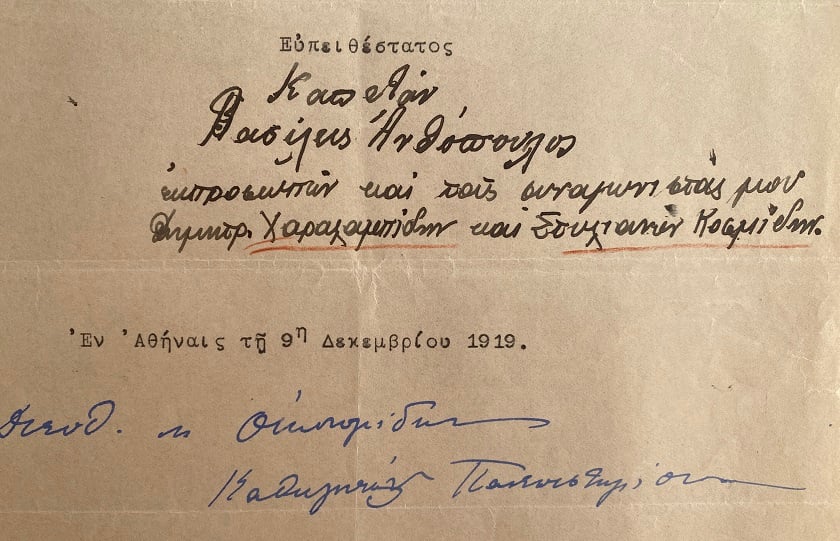 Εὐπειθέστατος
Καπετὰν
Βασίλης Ἀνθόπουλος
ἐκπροσωπῶν καὶ τοὺς συναγωνιστάς μου
Δημητρ. Χαραλαμπίδην καὶ Στυλιανὸν Κοσμίδην.
Ἐν Ἀθήναις τῇ 9η Δεκεμβρίου 1919.
Διευθ. Οἰκονομίδην
Καθηγητὴς Πανεπιστημίου